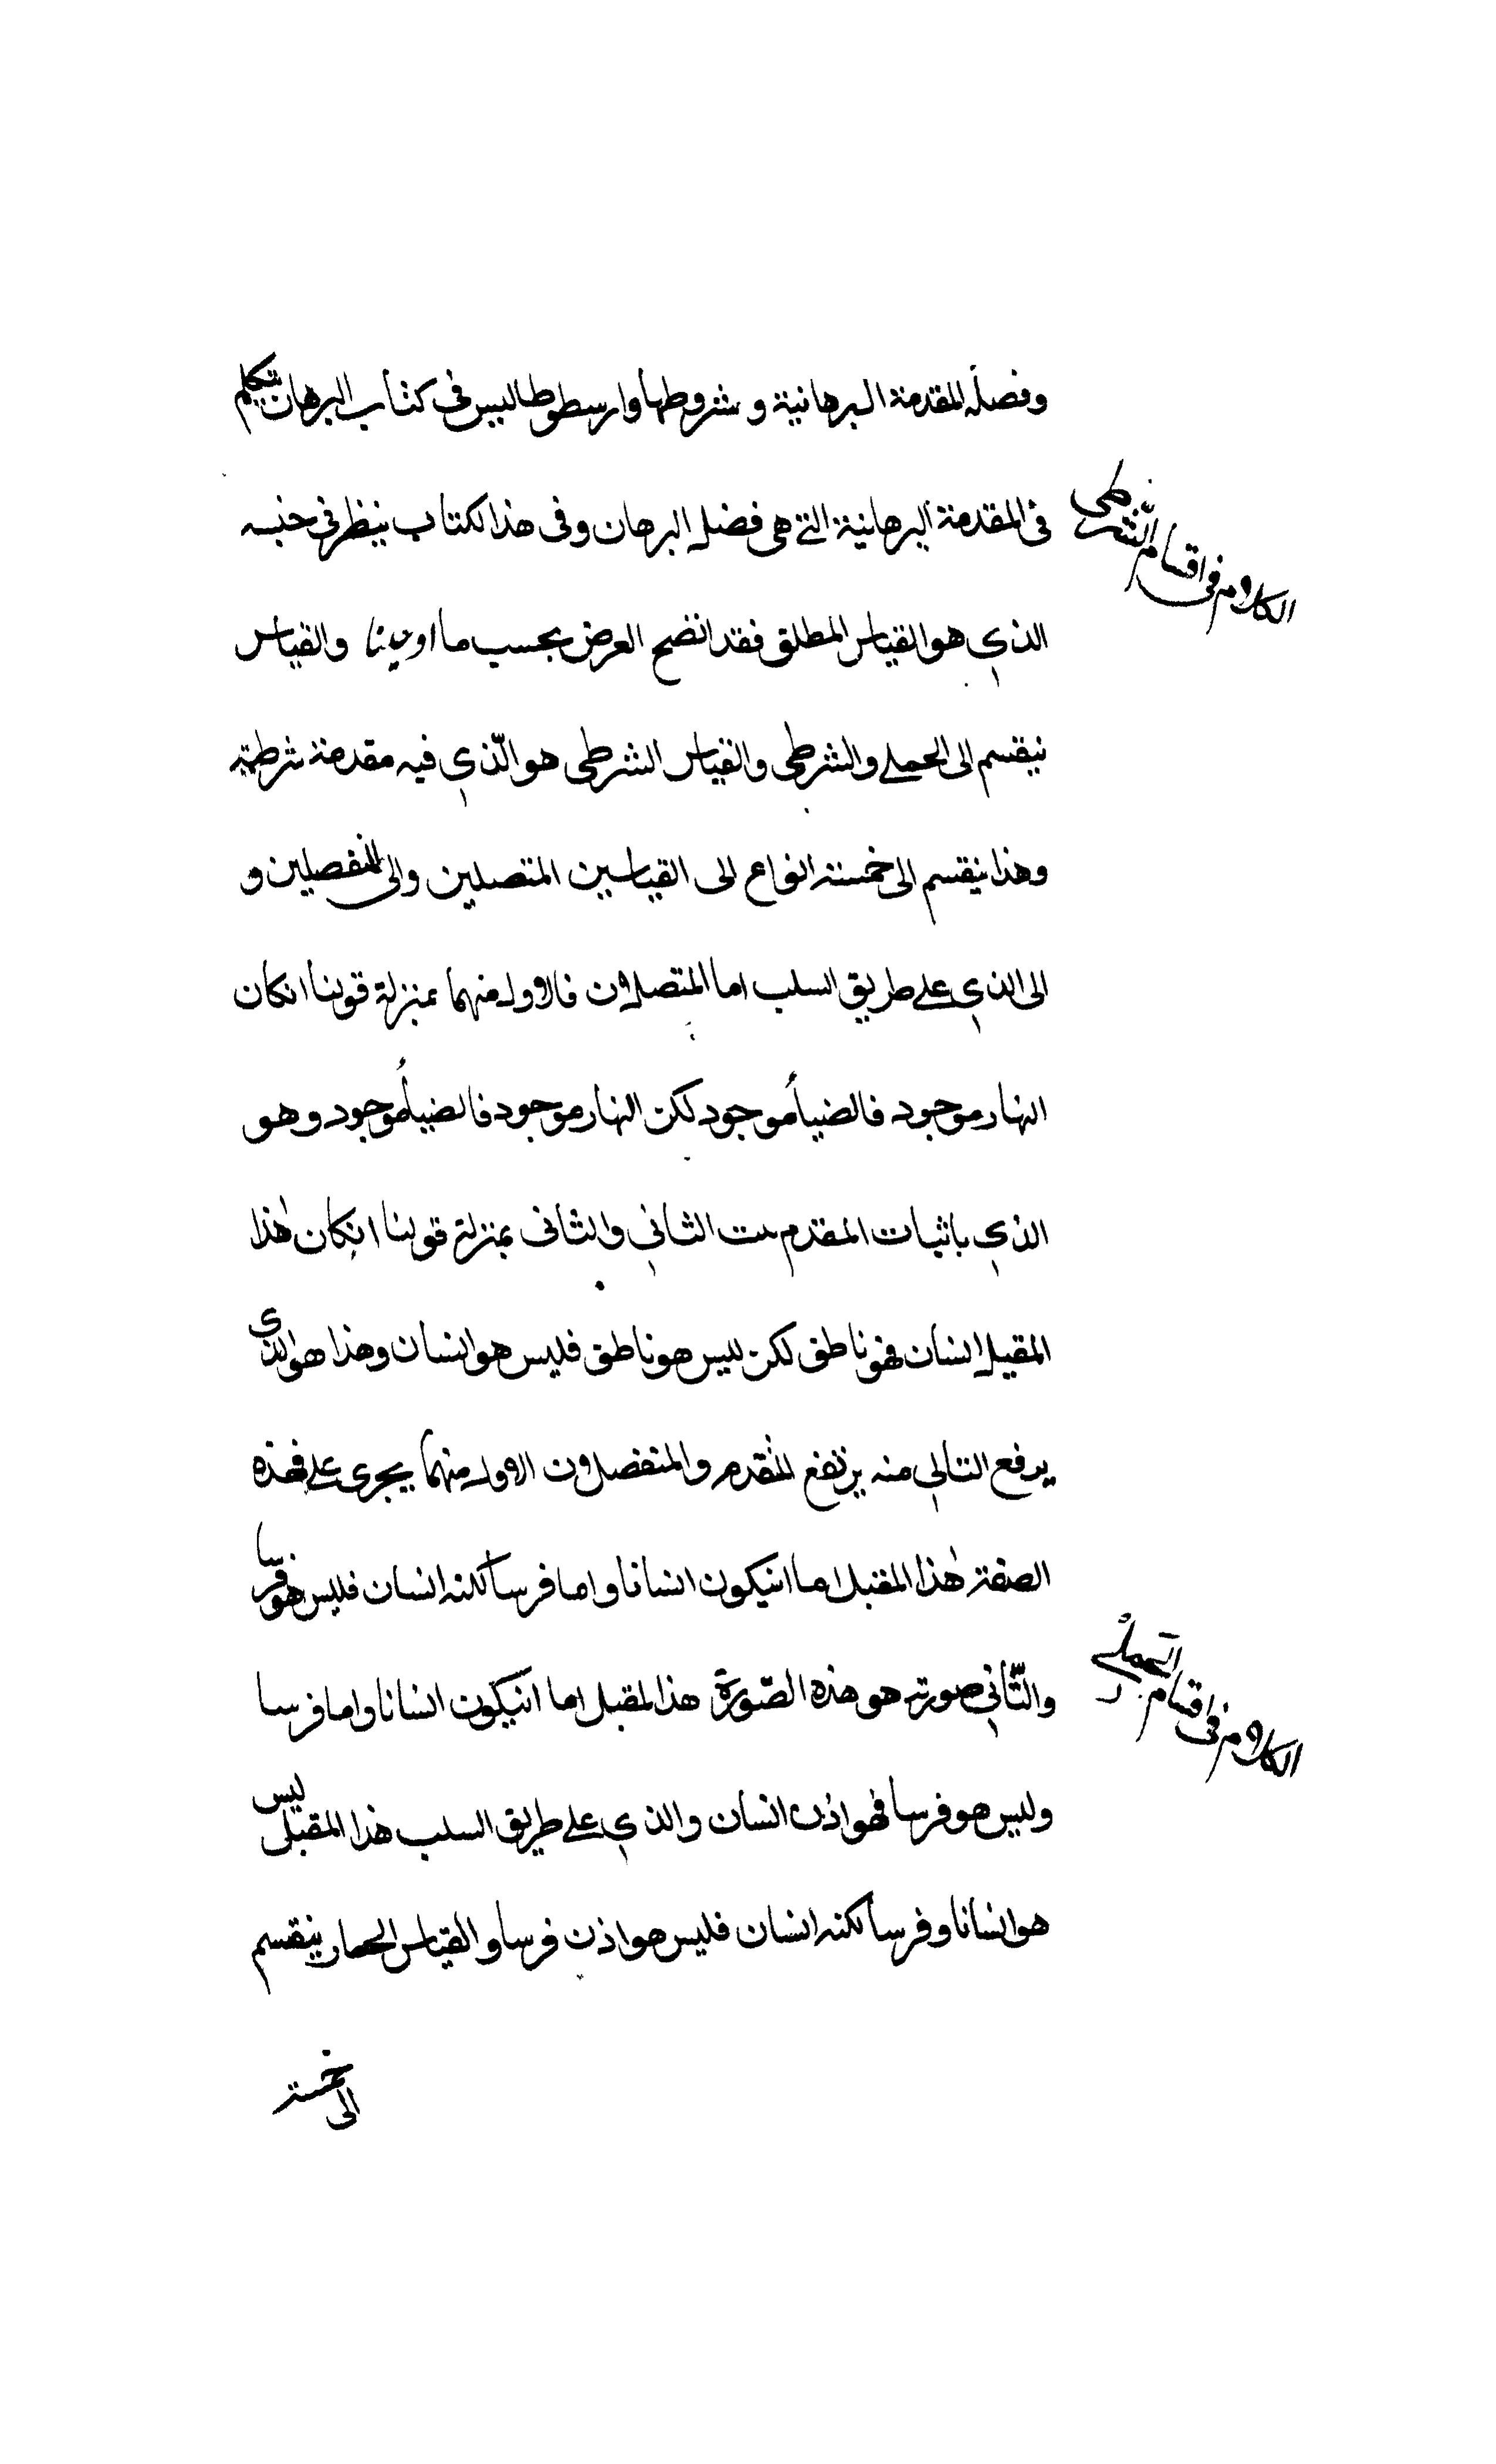 وفصله المقدمة البرهانية وشروطها وارسطوطاليس فى كتاب البرهان يتكلم
فى المقدمة البرهانية التى هى فصله البرهان وفى هذا الكتاب ينظر فى جنسه
الكلام فى اقسام الشرطى
الذي هو القياس المطلق فقد اتضح الغرض بحسب ما والقياس
ينقسم الى الحملى والشرطى والقياس الشرطى هو الّذي فيه مقدمة شرطية
وهذا ينقسم الى خمسة انواع الى القياسين المتصلين والى المنفصلين و
الى الذي على طريق السلب اما المتصلان فالاول منهما بمنزلة قولنا انكان
النهار موجود فالضياءُ موجود لكن النهار موجود فالضياءُ موجود وهو
الذي باثبات المقدم يثبت الثاني والثانى بمنزلة قولنا انكان هذا
المقبل انسان فهو ناطق لكن ليس هو ناطق فليس هو انسان وهذا هو الذى
يرفع التالي منه يرتفع المقدم والمنفصلان الاول منهما يجرى على هذه
الصفة هذا المقبل اما انيكون انسانا واما فرسا لكنه انسان فليس هو فرسا
والثّاني صورته هو هذه الصّورة هذا المقبل اما انيكون انسانا واما فرسا
الكلام فى اقسام الحملى
وليس هو فرسا فهو اذن انسان والذي على طريق السلب هذا المقبل ليس
هو انسانا وفرسا لكنه انسان فليس هو اذن فرسا والقياس ينقسم
الى خمسة